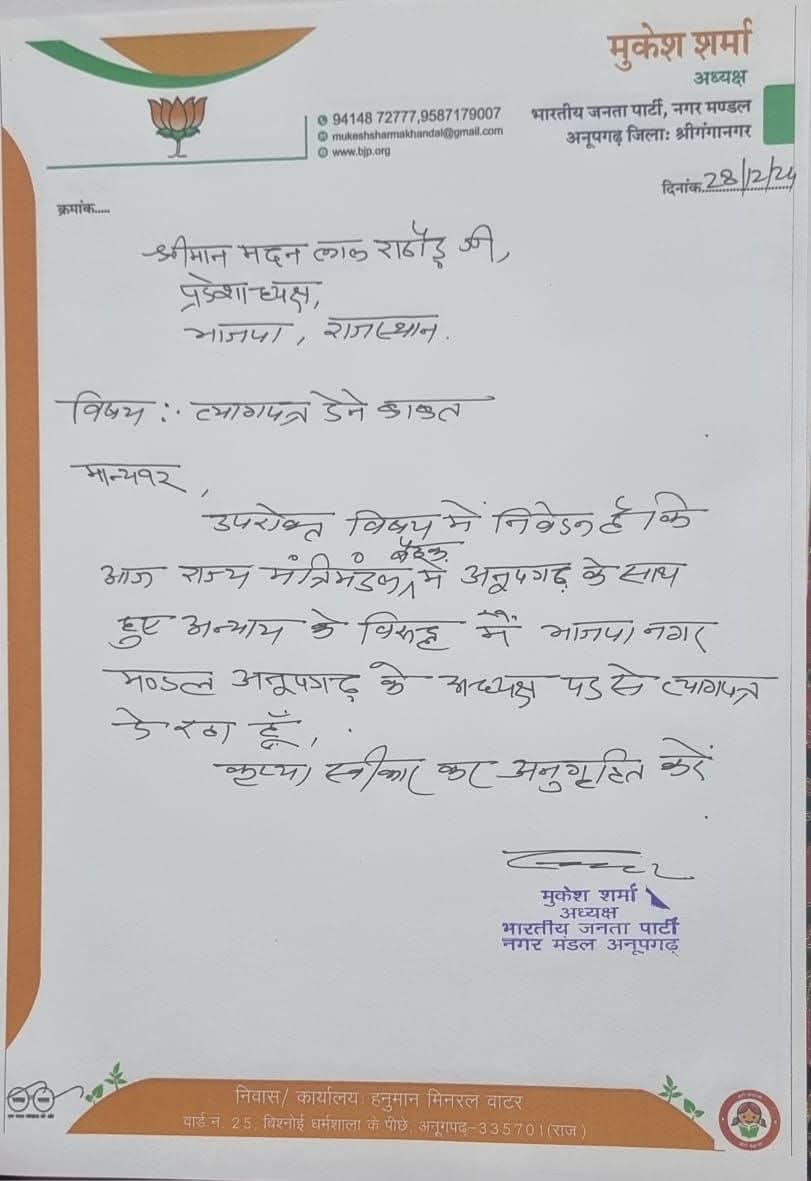 मुकेश शर्मा
अध्यक्ष
भारतीय जनता पार्टी, नगर मण्डल
अनूपगढ़ जिला: श्रीगंगानगर
94148 72777,9587179007
mukeshsharmakhandal@gmail.com
www.bjp.org
दिनांक 28/12/24
क्रमांक.....
श्रीमान मदन लाल राठौड़ जी,
प्रदेशाध्यक्ष,
भाजपा, राजस्थान.
विषय :- त्यागपत्र देने बाबत
मान्यवर,
उपरोक्त विषय में निवेदन है कि
आज राज्य मंत्रिमंडल बैठक में अनूपगढ़ के साथ
हुए अन्याय के विरुद्ध मैं भाजपा नगर
मण्डल अनूपगढ़ के अध्यक्ष पद से त्यागपत्र
दे रहा हूँ,
कृप्या स्वीकार कर अनुगृहित करें
मुकेश शर्मा
अध्यक्ष
भारतीय जनता पार्टी
नगर मंडल अनूपगढ़
निवास/ कार्यालय: हनुमान मिनरल वाटर
वार्ड न. 25, बिश्नोई धर्मशाला के पीछे, अनूपगढ़-335701(राज)